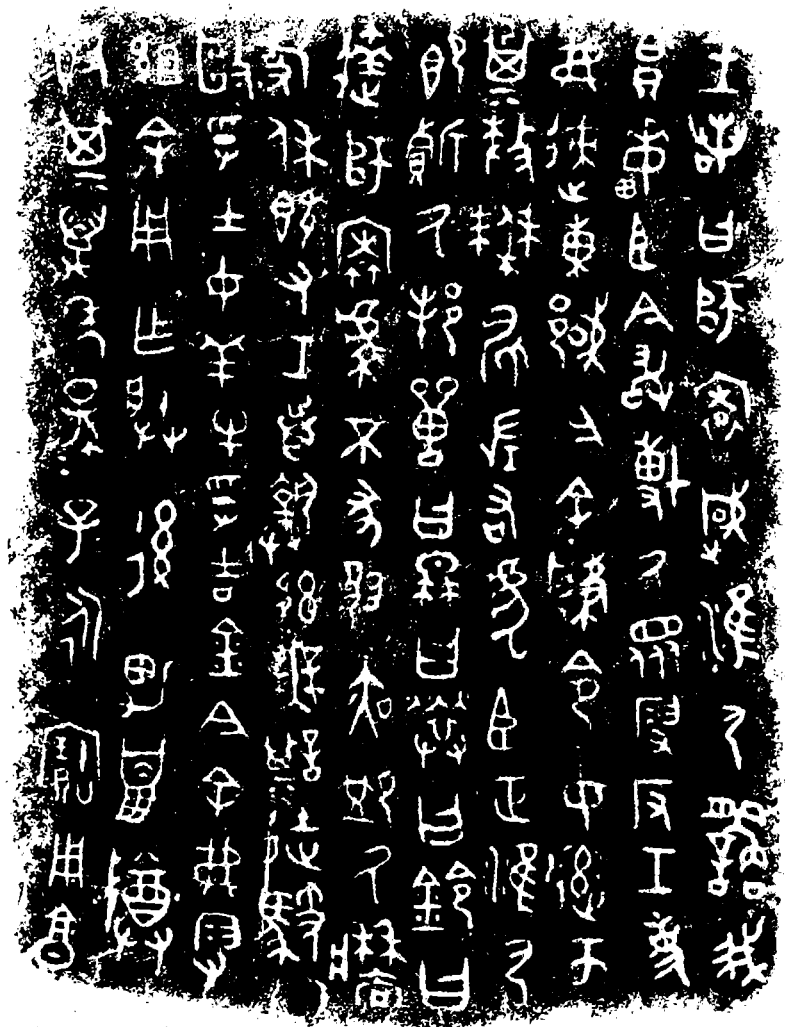 王若曰師㝨𢦏淮尸繇我
員畮臣今敢博厥眾叚反工吏
弗速東國今余肇令女遂齊帀
曩𠩺僰𡱂左右虎臣正淮尸
即質厥邦獸曰冉曰䍙曰鈴曰
達師㝨虔不彖夙夜卹厥牆
事休既又工折首執訊無諆徒馭
毆孚士女羊牛孚吉金今余弗叚
組余用乍朕後男臘尊簋
其萬年孫孫子子永寶用享